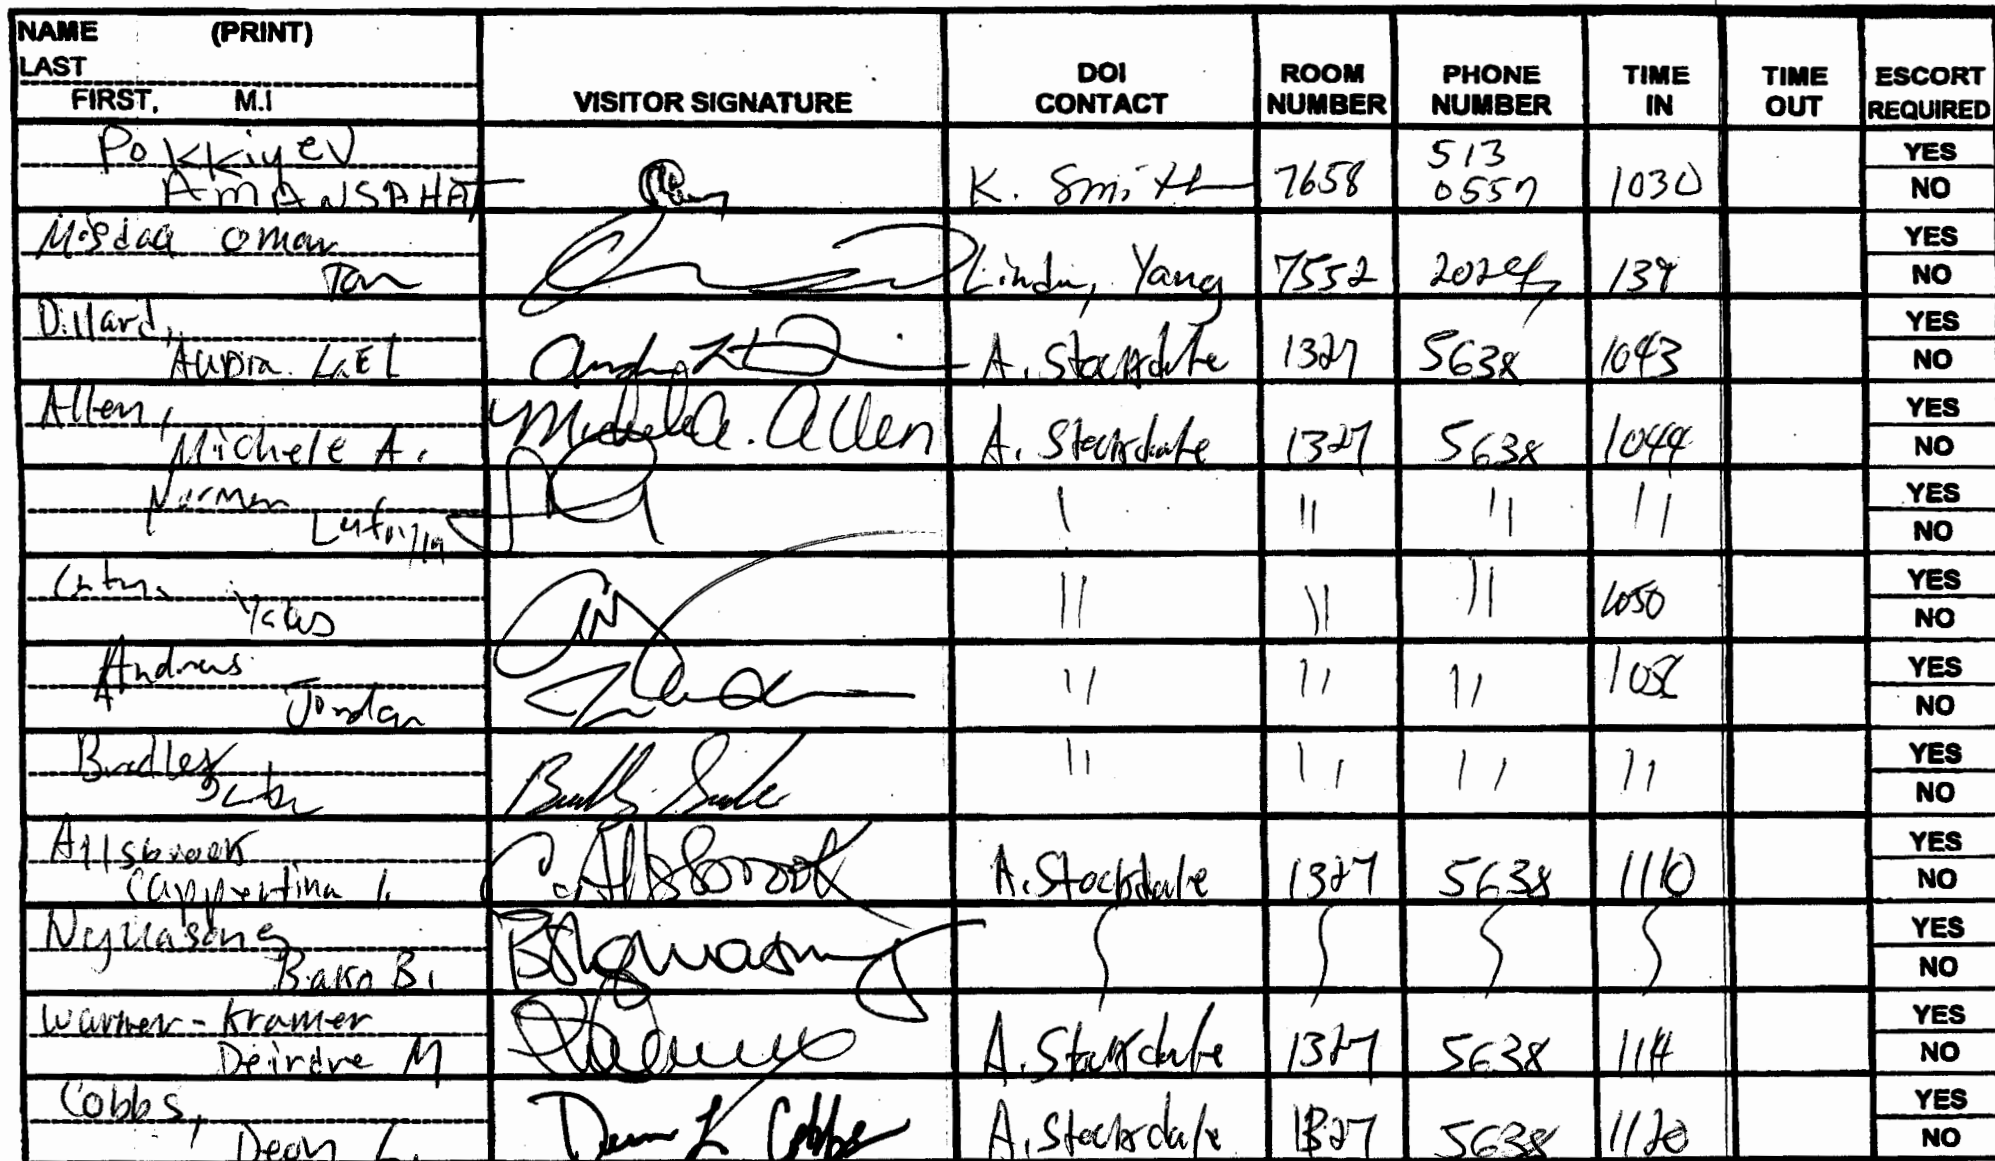 NAME (PRINT)
LAST
FIRST, M.I
VISITOR SIGNATURE
DOI CONTACT
ROOM NUMBER
PHONE NUMBER
TIME IN
TIME OUT
ESCORT REQUIRED
Pokkiyev
AMANSAHAT
K. Smith 7658 513 0557 1030 YES NO
Misdaq Omar
Linda, Yang 7552 YES NO
Dillard,
LaEl
A. Stockdale 1327 5638 1043 YES NO
Allen,
Michele A.
Michele A. Allen
A. Stockdale 1327 5638 1044 YES NO
Norman
" " " YES NO
" " " 1050 YES NO
Andrews
Jordan
" " " YES NO
Bradley
" " " " YES NO
Allsbrook
Cappertina L.
C. Allsbrook
A. Stockdale 1327 5638 1110 YES NO
Bako B.
YES NO
Warner-Kramer
Deirdre M
A. Stockdale 1327 5638 1114 YES NO
Cobbs,
Dean L.
Dean L Cobbs
A. Stockdale 1327 5638 1120 YES NO